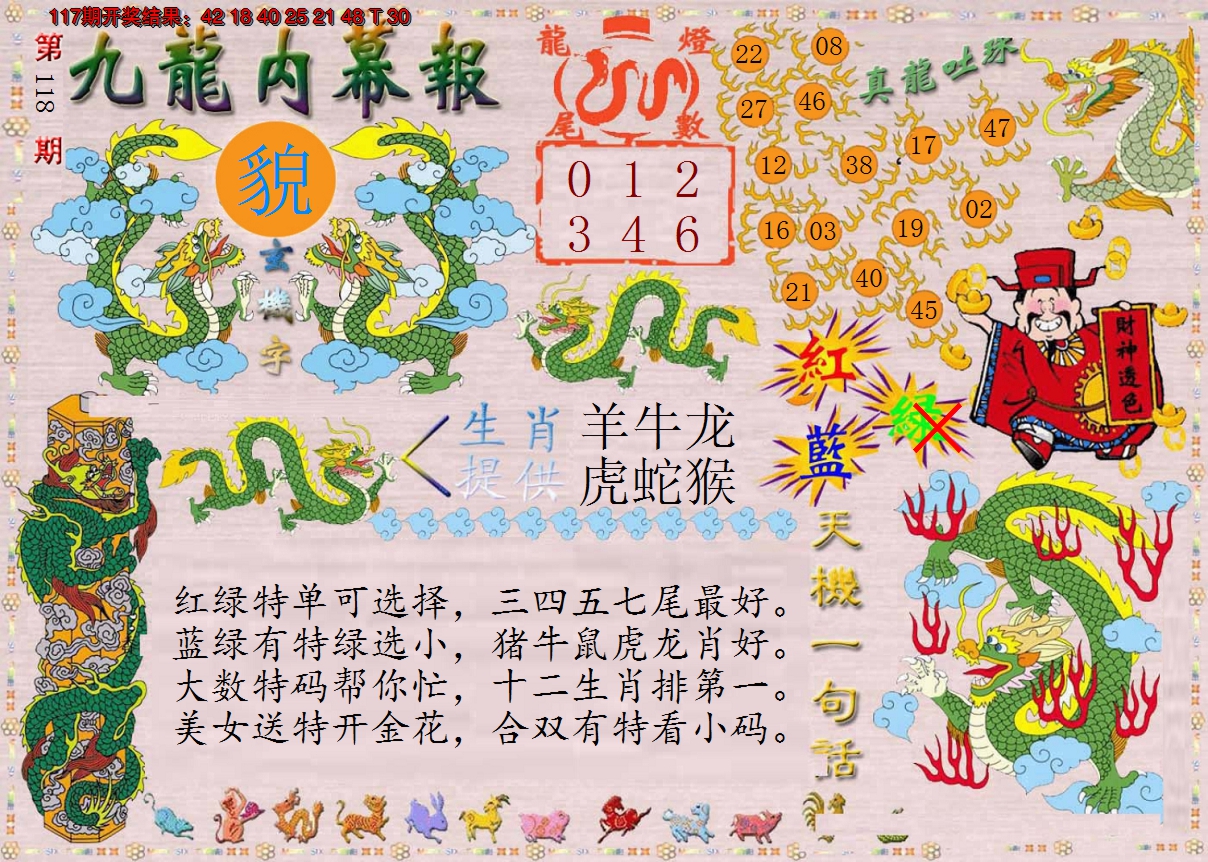 117期开奖结果：42 18 40 25 21 48 T 30
第118期
九龍内幕報
貌
玄機字
龍燈尾數
0 1 2
3 4 6
真龍吐珠
22 08
27 46
12 38 17 47
16 03 19 02
21 40 45
財神透色
紅
綠
藍
生肖提供
羊牛龙
虎蛇猴
天機一句话
红绿特单可选择，三四五七尾最好。
蓝绿有特绿选小，猪牛鼠虎龙肖好。
大数特码帮你忙，十二生肖排第一。
美女送特开金花，合双有特看小码。